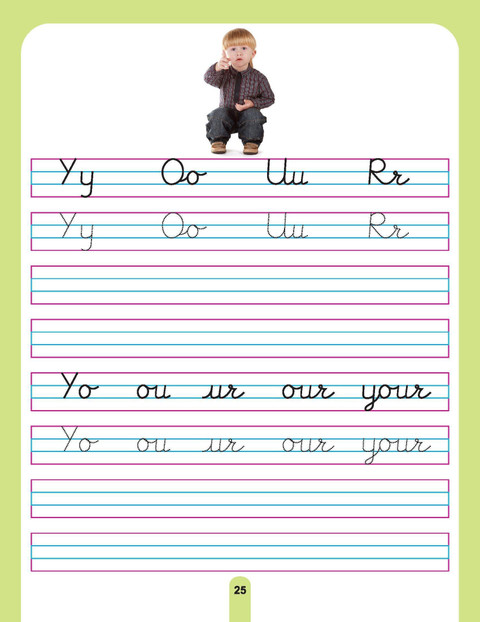 Yy Oo Uu Rr
Yy Oo Uu Rr
Yo ou ur our your
Yo ou ur our your
25